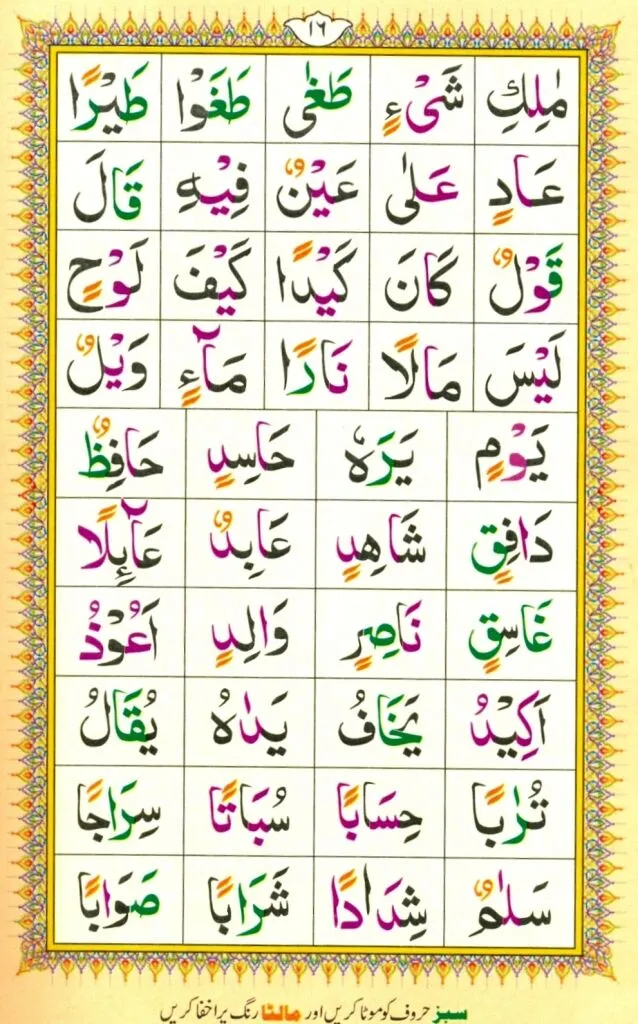 ١٦
مٰلِكِ شَیْءٍ طَغٰی طَغَوْا طَیْرًا
عَادٍ عَلٰی عَیْنٌ فِیْهِ قَالَ
قَوْلٌ كَانَ كَیْدًا كَیْفَ لَوْحٍ
لَیْسَ مَالًا نَارًا مَآءٍ وَیْلٌ
یَوْمٍ یَرَهٗ حَاسِدٍ حَافِظٌ
دَافِقٍ شَاهِدٍ عَابِدٌ عَآىِٕلًا
غَاسِقٍ نَاصِرٍ وَالِدٍ اَعُوْذُ
اَكِیْدُ یَخَافُ یَدٰهُ یُقَالُ
تُرٰبًا حِسَابًا سُبَاتًا سِرَاجًا
سَلٰمٌ شِدَادًا شَرَابًا صَوَابًا
سبز حروف کو موٹا کریں اور مالٹا رنگ پر اخفا کریں